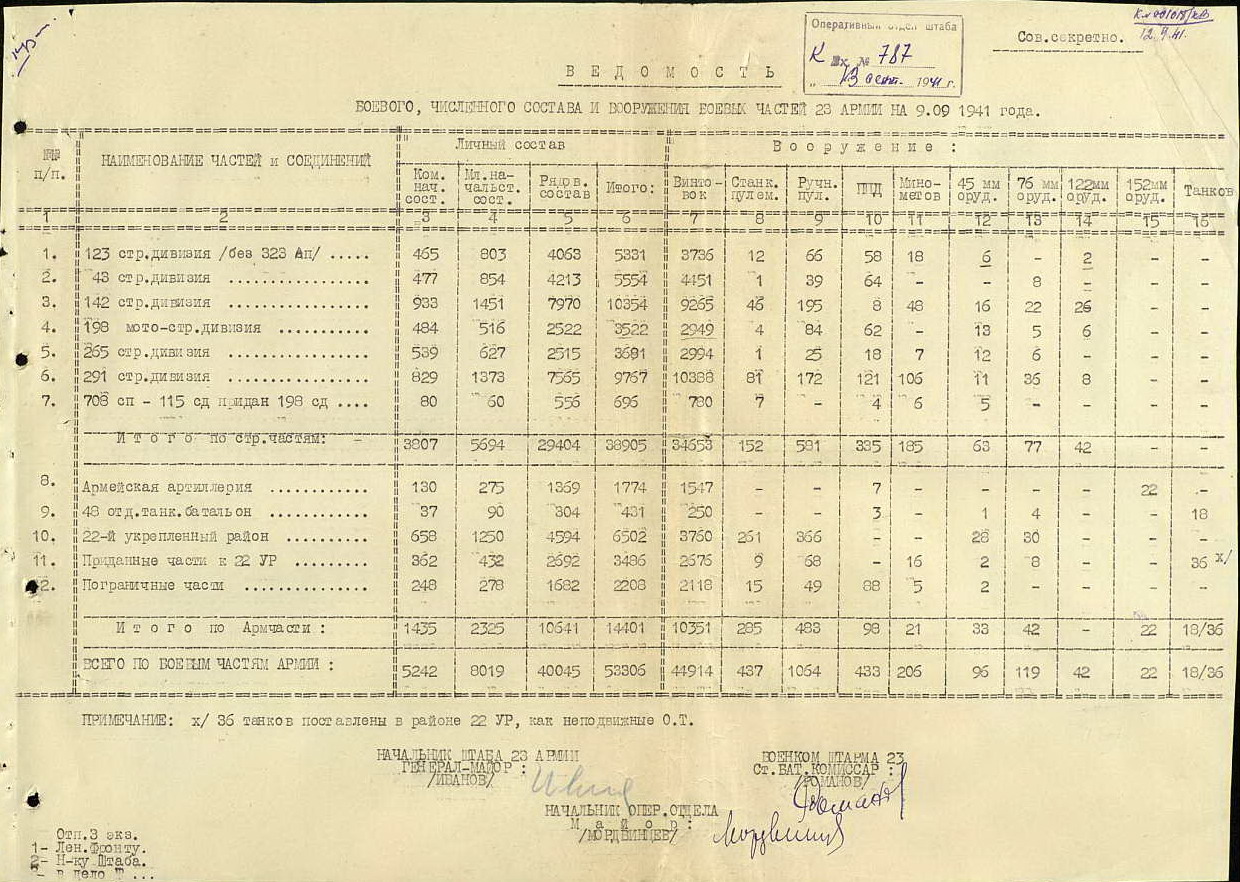 Оперативный отдел штаба
К Вх. № 787
„ 13 сент. 1941 г.
12.9.41.
Сов.секретно.
ВЕДОМОСТЬ
БОЕВОГО, ЧИСЛЕННОГО СОСТАВА И ВООРУЖЕНИЯ БОЕВЫХ ЧАСТЕЙ 23 АРМИИ НА 9.09 1941 года.
№№ п/п. НАИМЕНОВАНИЕ ЧАСТЕЙ и СОЕДИНЕНИЙ Личный состав Вооружение :
Ком. нач. сост. Мл.на- чальст. сост. Рядов. состав Итого: Винто- вок Станк. пулем. Ручн. пул. ППД Мино- метов 45 мм оруд. 76 мм оруд. 122мм оруд. 152мм оруд. Танков
1 2 3 4 5 6 7 8 9 10 11 12 13 14 15 16
1. 123 стр.дивизия /без 323 Ап/ ..... 465 803 4063 5331 3736 12 66 58 18 6 - 2 - -
2. 43 стр.дивизия ................ 477 854 4213 5554 4451 1 39 64 - - 8 - - -
3. 142 стр.дивизия ................ 933 1451 7970 10354 9265 46 195 8 48 16 22 26 - -
4. 198 мото-стр.дивизия .......... 484 516 2522 3522 2949 4 84 62 - 13 5 6 - -
5. 265 стр.дивизия ................ 539 627 2515 3681 2994 1 25 18 7 12 6 - - -
6. 291 стр.дивизия ................ 829 1373 7565 9767 10388 81 172 121 106 11 36 8 - -
7. 708 сп - 115 сд придан 198 сд .... 80 60 556 696 780 7 - 4 6 5 - - - -
Итого по стр.частям: - 3807 5694 29404 38905 34653 152 581 335 185 63 77 42 - -
8. Армейская артиллерия ............ 130 275 1369 1774 1547 - - 7 - - - - 22 -
9. 48 отд.танк.батальон ............ 37 90 304 431 250 - - 3 - 1 4 - - 18
10. 22-й укрепленный район .......... 658 1250 4594 6502 3760 261 366 - - 28 30 - - -
11. Приданные части к 22 УР ......... 362 432 2692 3486 2676 9 68 - 16 2 8 - - 36 х/
12. Пограничные части ............... 248 278 1682 2208 2118 15 49 88 5 2 - - - -
Итого по Армчасти : 1435 2325 10641 14401 10351 285 483 98 21 33 42 - 22 18/36
ВСЕГО ПО БОЕВЫМ ЧАСТЯМ АРМИИ : 5242 8019 40045 53306 44914 437 1064 433 206 96 119 42 22 18/36
ПРИМЕЧАНИЕ: х/ 36 танков поставлены в районе 22 УР, как неподвижные О.Т.
НАЧАЛЬНИК ШТАБА 23 АРМИИ
ГЕНЕРАЛ-МАЙОР :
/ИВАНОВ/
ВОЕНКОМ ШТАРМА 23
Ст.БАТ.КОМИССАР :
/РОМАНОВ/
НАЧАЛЬНИК ОПЕР.ОТДЕЛА
Майор:
/МОРДВИНЦЕВ/
Отп.3 экз.
1- Лен.Фронту.
2- Н-ку Штаба.
3- в дело